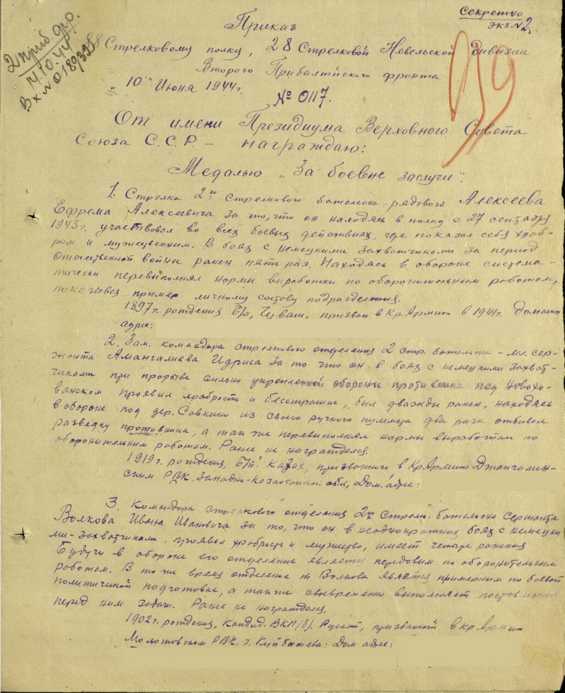 Секретно
экз №2.
Приказ
Стрелковому полку, 28 Стрелковой Невельской дивизии
Второго Прибалтийского фронта
10 Июня 1944г.
№ 0117.
От имени Президиума Верховного Совета
Союза С.С.Р – награждаю:
Медалью "За боевые заслуги":
1. Стрелка 2го Стрелкового батальона рядового Алексеева
Ефрема Алексеевича за то, что он находясь в полку с 27 сентября
1943г. участвовал во всех боевых действиях, где показал себя храб-
рым и мужественным. В боях с немецкими захватчиками за период
Отечественной войны ранен пять раз. Находясь в обороне система-
тически перевыполнял нормы выработки по оборонительным работам,
показывая пример личному составу подразделения.
1897г. рождения, Б/п, Чуваш, призван в Кр.Армию в 1944г. Домашн
адрес:
2. Зам. командира стрелкового отделения 2 стр. батальона – мл. сер-
жанта Амангалиева Идриса за то что он в боях с немецкими захват-
чиками при прорыве сильно укрепленной обороны противника под Ново-
проявил храбрость и бесстрашие, был дважды ранен, находясь
в обороне под дер. из своего ручного пулемета два раза отбивал
разведку противника, а так же перевыполнял нормы выработки по
оборонительным работам. Ранее не награждался.
1919г. рождения, Б/п Казах, призван в Кр.Армию
РВК, Западно-Казахстанск. обл, Дом. адрес:
3. Командира стрелкового отделения 2го Стрелк. батальона Сержанта
Волкова Ивана Ивановича за то, что он в неоднократных боях с немецки-
ми захватчиками проявил храбрость и мужество, имеет четыре ранения
Будучи в обороне его отделение является передовым по оборонительным
работам. В то же время отделение т. Волкова является примерным по боевой
политической подготовке, а также своевременно выполняет поставленные
перед ним задачи. Ранее не награждался.
1902г. рождения, Кандид. ВКП/б/. Русский, призван в Кр.Армию
Молотовским РВК г. Куйбышева. Дом адрес: